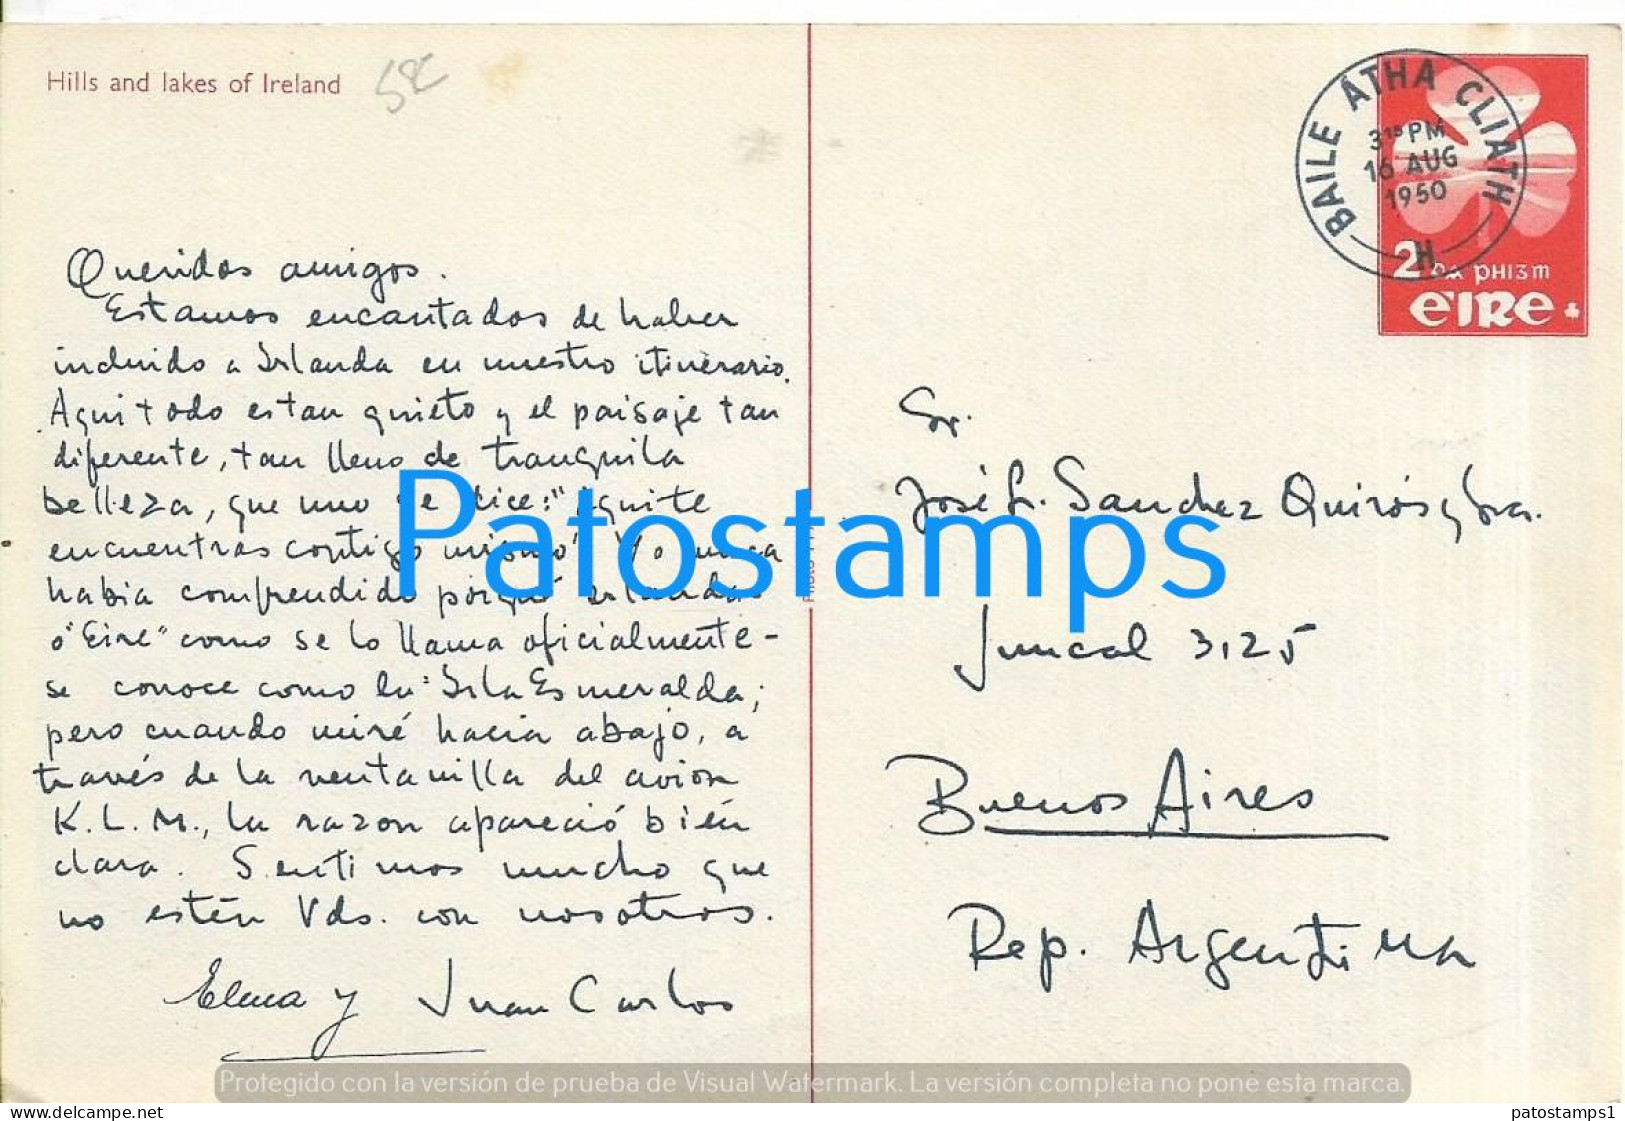 Hills and lakes of Ireland
58E
BAILE ÁTHA CLIATH
3¹⁵ PM
16 AUG
1950
H
2
PHIZM
EIRE
Queridos amigos.
Estamos encantados de haber
incluido a Irlanda en nuestro itinerario.
Aqui todo es tan quieto y el paisaje tan
diferente, tan lleno de tranquila
belleza, que uno se dice: "aquí te
encuentras contigo mismo" Yo nunca
habia comprendido porqué Irlanda
o "Eire" como se lo llama oficialmente -
se conoce como la Isla Esmeralda;
pero cuando miré hacia abajo, a
través de la ventanilla del avion
K.L.M., la razon apareció bien
clara. Sentimos mucho que
no estén Vds. con nosotros.
Elena y Juan Carlos
Sr.
José L. Sanchez Quirós y Sra.
Juncal 3125
Buenos Aires
Rep. Argentina
Patostamps
Protegido con la versión de prueba de Visual Watermark. La versión completa no pone esta marca.
www.delcampe.net
patostamps1